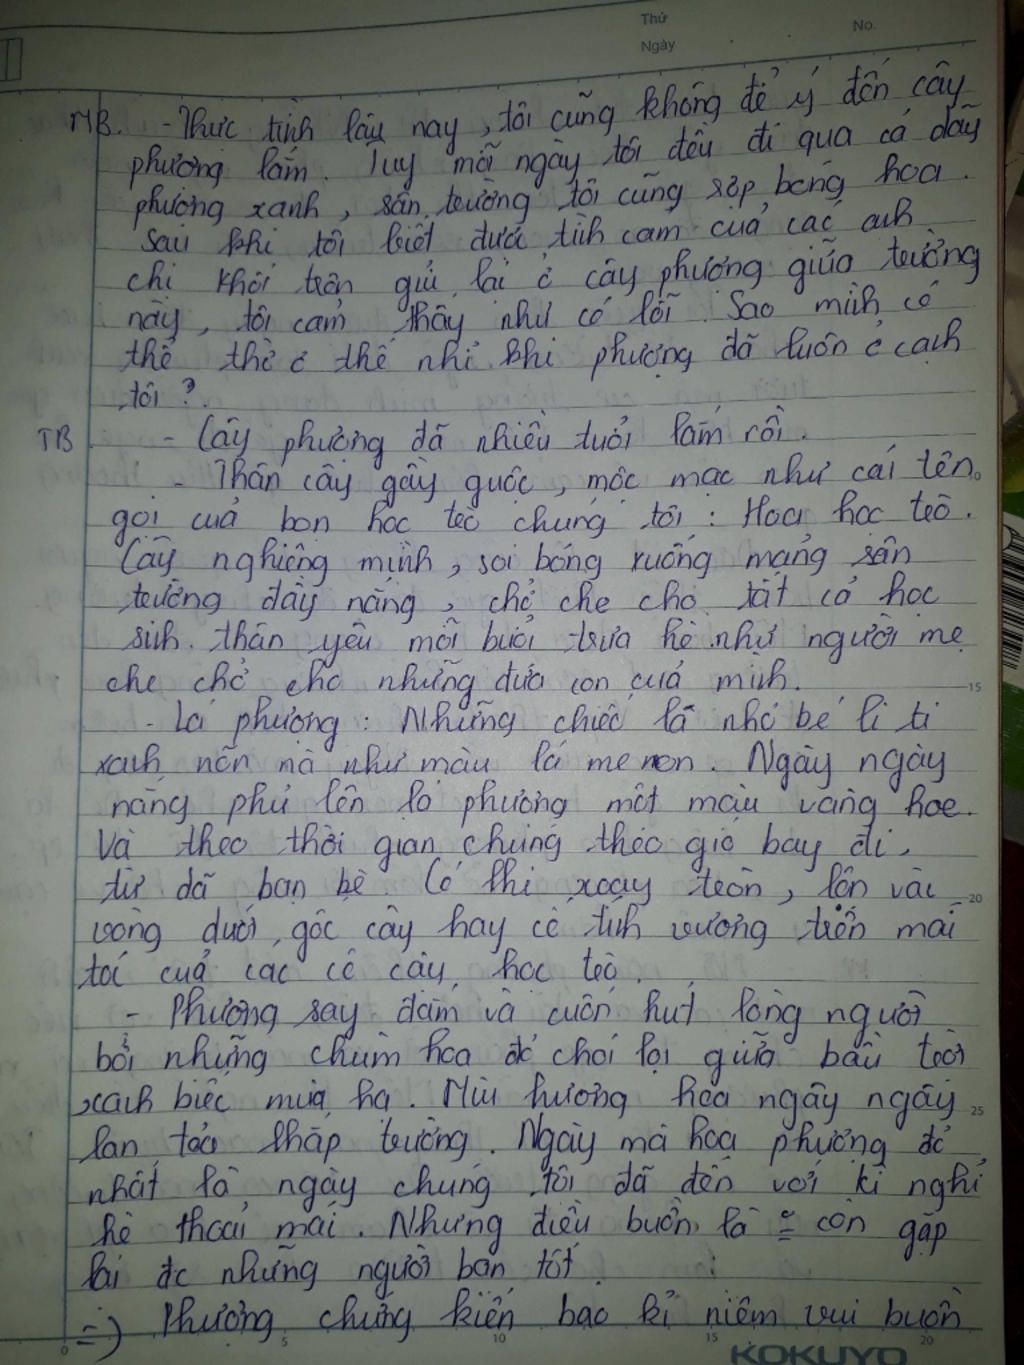 Thứ No.
Ngày
MB. - Thực tình lâu nay, tôi cũng không để ý đến cây
phượng lắm. Tuy mỗi ngày tôi đều đi qua cả dãy
phượng xanh, sân trường tôi cũng rợp bóng hoa.
Sau khi tôi biết được tình cảm của các anh
chị khối trên gửi lại ở cây phượng giữa trường
này, tôi cảm thấy như có lỗi. Sao mình có
thể thờ ơ thế nhỉ khi phượng đã luôn ở cạnh
tôi?.
TB - Cây phượng đã nhiều tuổi lắm rồi.
- Thân cây gầy guộc, mộc mạc như cái tên
gọi của bọn học trò chúng tôi: Hoa học trò.
Cây nghiêng mình, soi bóng xuống mảng sân
trường đầy nắng, chở che cho tất cả học
sinh thân yêu mỗi buổi trưa hè như người mẹ
che chở cho những đứa con của mình.
- Lá phượng: Những chiếc lá nhỏ bé li ti
xanh nõn nà như màu lá me non. Ngày ngày
nắng phủ lên lá phượng một màu vàng hoe.
Và theo thời gian chúng theo gió bay đi,
từ dã bạn bè. Có khi xoay tròn, lộn vài
vòng dưới gốc cây hay cố tình vương trên mái
tóc của các cô cậu học trò.
- Phượng say đắm và cuốn hút lòng người
bởi những chùm hoa đỏ chói lọi giữa bầu trời
xanh biếc mùa hạ. Mùi hương hoa ngây ngây
lan tỏa khắp trường. Ngày mà hoa phượng đỏ
nhất là ngày chúng tôi đã đến với kì nghỉ
hè thoải mái. Nhưng điều buồn là còn gặp
lại đc những người bạn tốt.
=) Phượng chứng kiến bao kỉ niệm vui buồn
10
15
20
25
0 5 10 15 20
KOKUYO